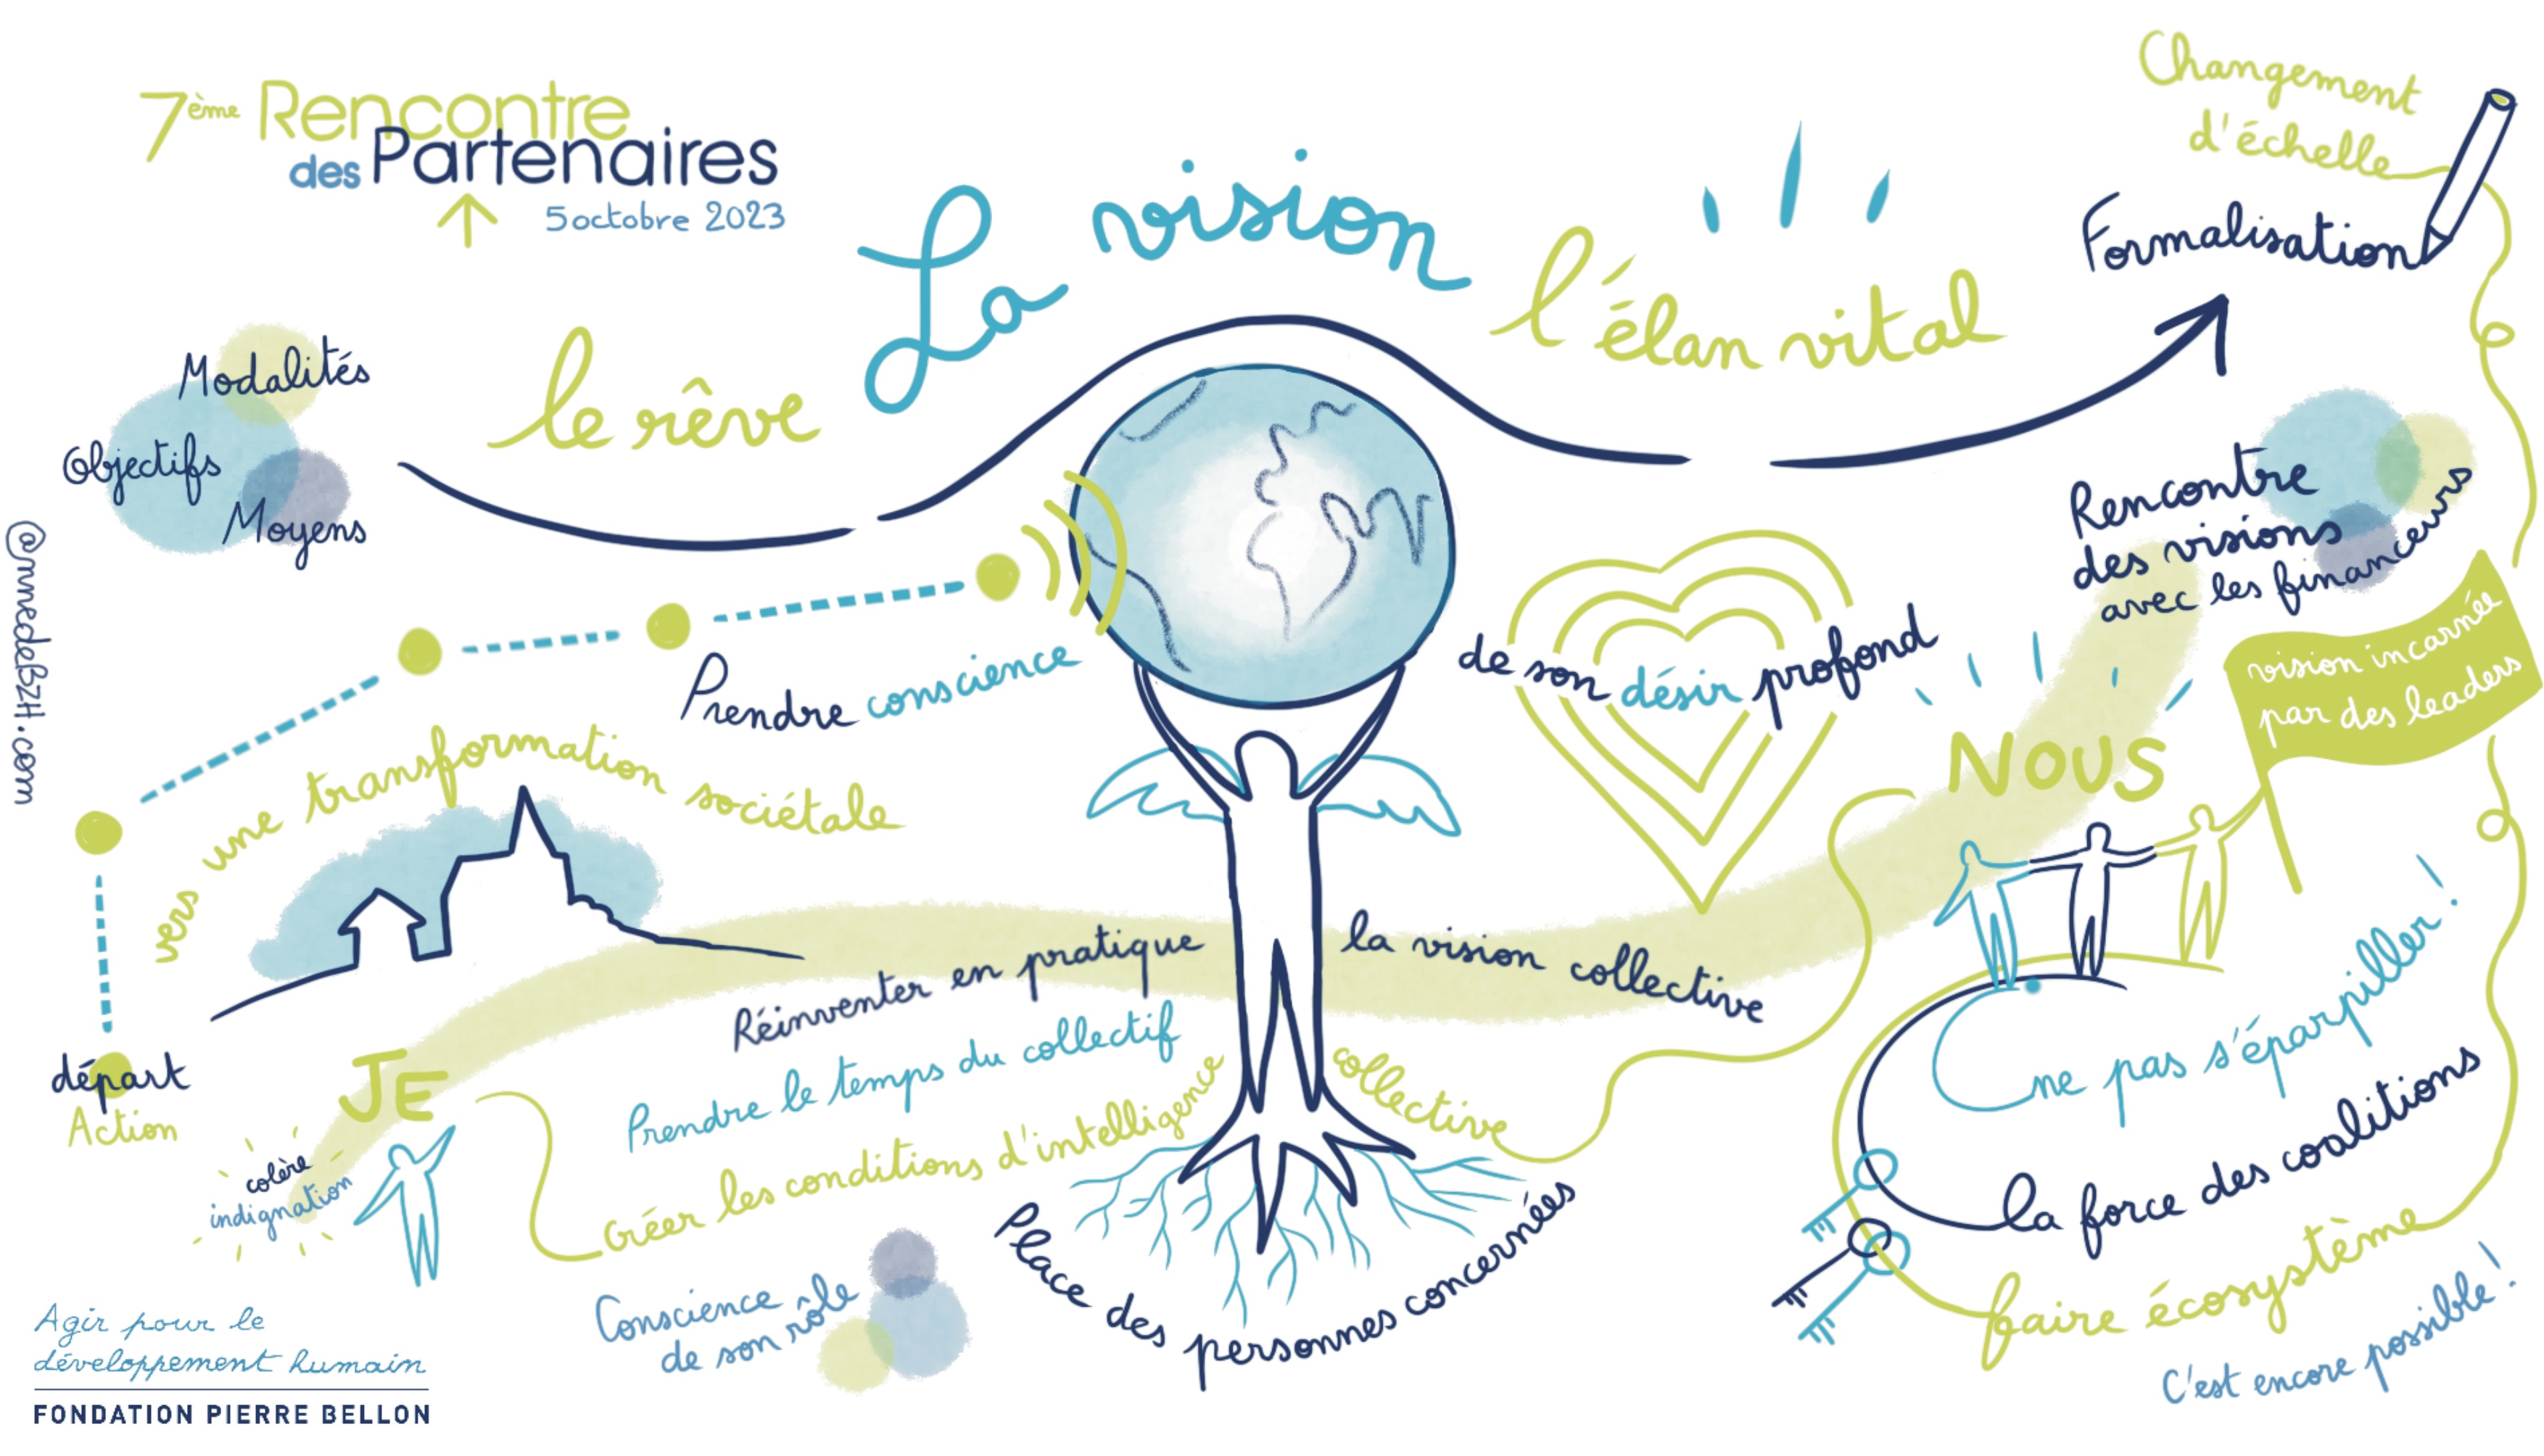 7ème Rencontre
des Partenaires
5 octobre 2023
Changement
d'échelle
Formalisation
La vision
le rêve
l'élan vital
Modalités
Objectifs
Moyens
Rencontre
des visions
avec les financeurs
@nnedeBZH.com
Prendre conscience
de son désir profond
vision incarnée
par des leaders
vers une transformation sociétale
NOUS
Réinventer en pratique
la vision collective
départ
Action
JE
colère
indignation
Prendre le temps du collectif
Créer les conditions d'intelligence collective
ne pas s'éparpiller !
la force des coalitions
faire écosystème
C'est encore possible !
Place des personnes concernées
Conscience
de son rôle
Agir pour le
développement humain
FONDATION PIERRE BELLON